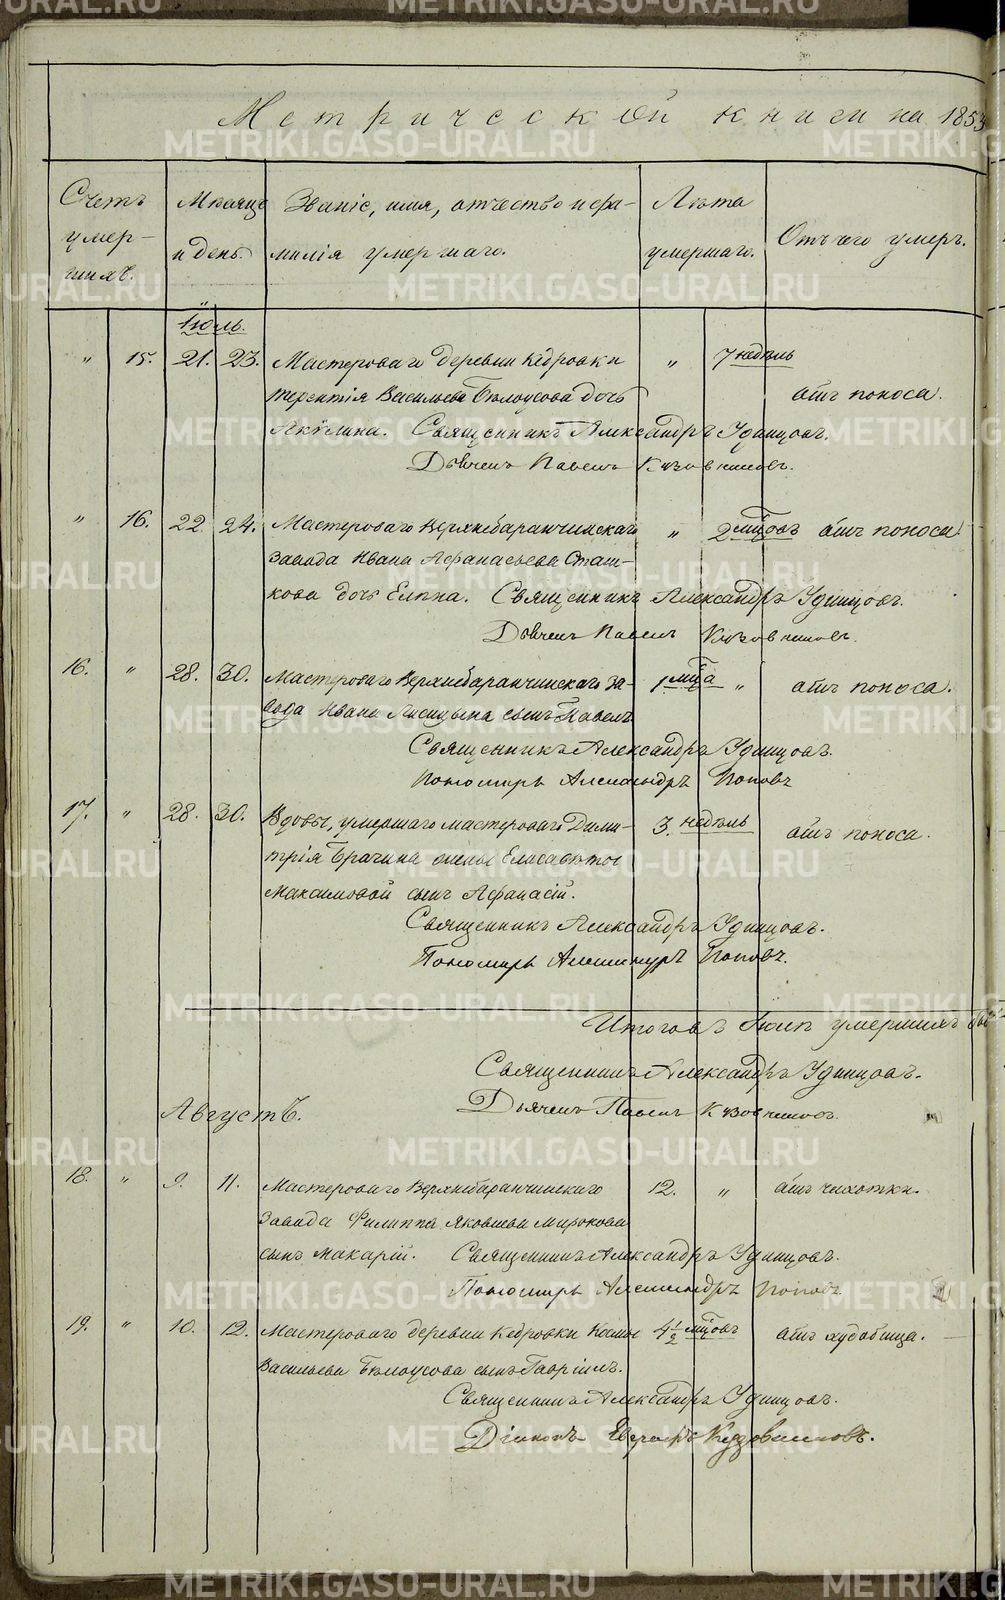 Метрической книги на 1853
Счетъ умер-шихъ.
Мѣсяцъ и день.
Званіе, имя, отчество и фа-
милія умершаго.
Лѣта умершаго.
Отъ чего умеръ.
Іюль.
" 15. 21. 23. Мастероваго деревни Кедровки " 7 недѣль
Терентія Васильева Бѣлоусова дочь отъ поноса.
Акулина. Священникъ Александръ Удинцовъ.
Дьячекъ Павелъ Кузовниковъ.
" 16. 22 24. Мастероваго Верхнебаранчинскаго " 2 мцовъ отъ поноса
завода Ивана Афанасьева Сташ-
кова дочь Елена. Священникъ Александръ Удинцовъ.
Дьячекъ Павелъ Кузовниковъ.
16. " 28. 30. Мастероваго Верхнебаранчинскаго за- 1 мца " отъ поноса.
вода Ивана Лисицына сынъ Павелъ
Священникъ Александръ Удинцовъ.
Пономарь Александръ Поповъ
17. " 28. 30. Вдовы, умершаго мастероваго Дими- 3. недѣль отъ поноса.
трія Брагина жены Елисаветы
Максимовой сынъ Афанасій.
Священникъ Александръ Удинцовъ.
Пономарь Александръ Поповъ.
Итого въ Іюлѣ умершихъ
Священникъ Александръ Удинцовъ.
Дьячекъ Павелъ Кузовниковъ.
Августъ.
18. " 9. 11. Мастероваго Верхнебаранчинскаго 12. " отъ чихотки.
завода Филиппа Яковлева Миронова
сынъ Макарій. Священникъ Александръ Удинцовъ.
Пономарь Александръ Поповъ.
19. " 10. 12. Мастероваго деревни Кедровки Космы 4 1/2 мцовъ отъ худобища.
Васильева Бѣлоусова сынъ Гавріилъ.
Священникъ Александръ Удинцовъ.
Діаконъ Кузовниковъ.
METRIKI.GASO-URAL.RU